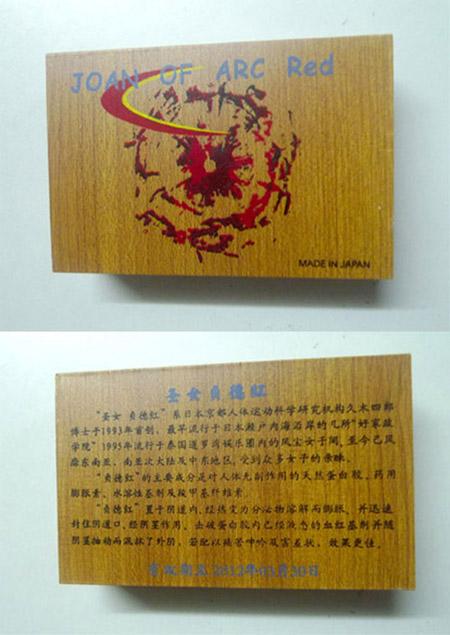 JOAN OF ARC Red
MADE IN JAPAN
圣女贞德红
“圣女贞德红”系日本京都人体运动科学研究机构久木四郎
博士于1993年首创，最早流行于日本濑户内海沿岸的几所“好家政
学院”1995年流行于泰国暹罗湾娱乐圈内的风尘女子间，至今已风
靡东南亚、南亚次大陆及中东地区，受到众多女子的亲睐。
“贞德红”的主要成分是对人体无副作用的天然蛋白胶、药用
膨胀素、水溶性基剂及羧甲基纤维素。
“贞德红”置于阴道内，经体受力分泌物溶解而膨胀，并迅速
封住阴道口，经阴茎作用，击破蛋白胶内已经液态的血红基剂并随
阴茎抽动而流抹了外阴，若配以痛苦呻吟及害羞状，效果更佳。
有效期至2012年03月30日